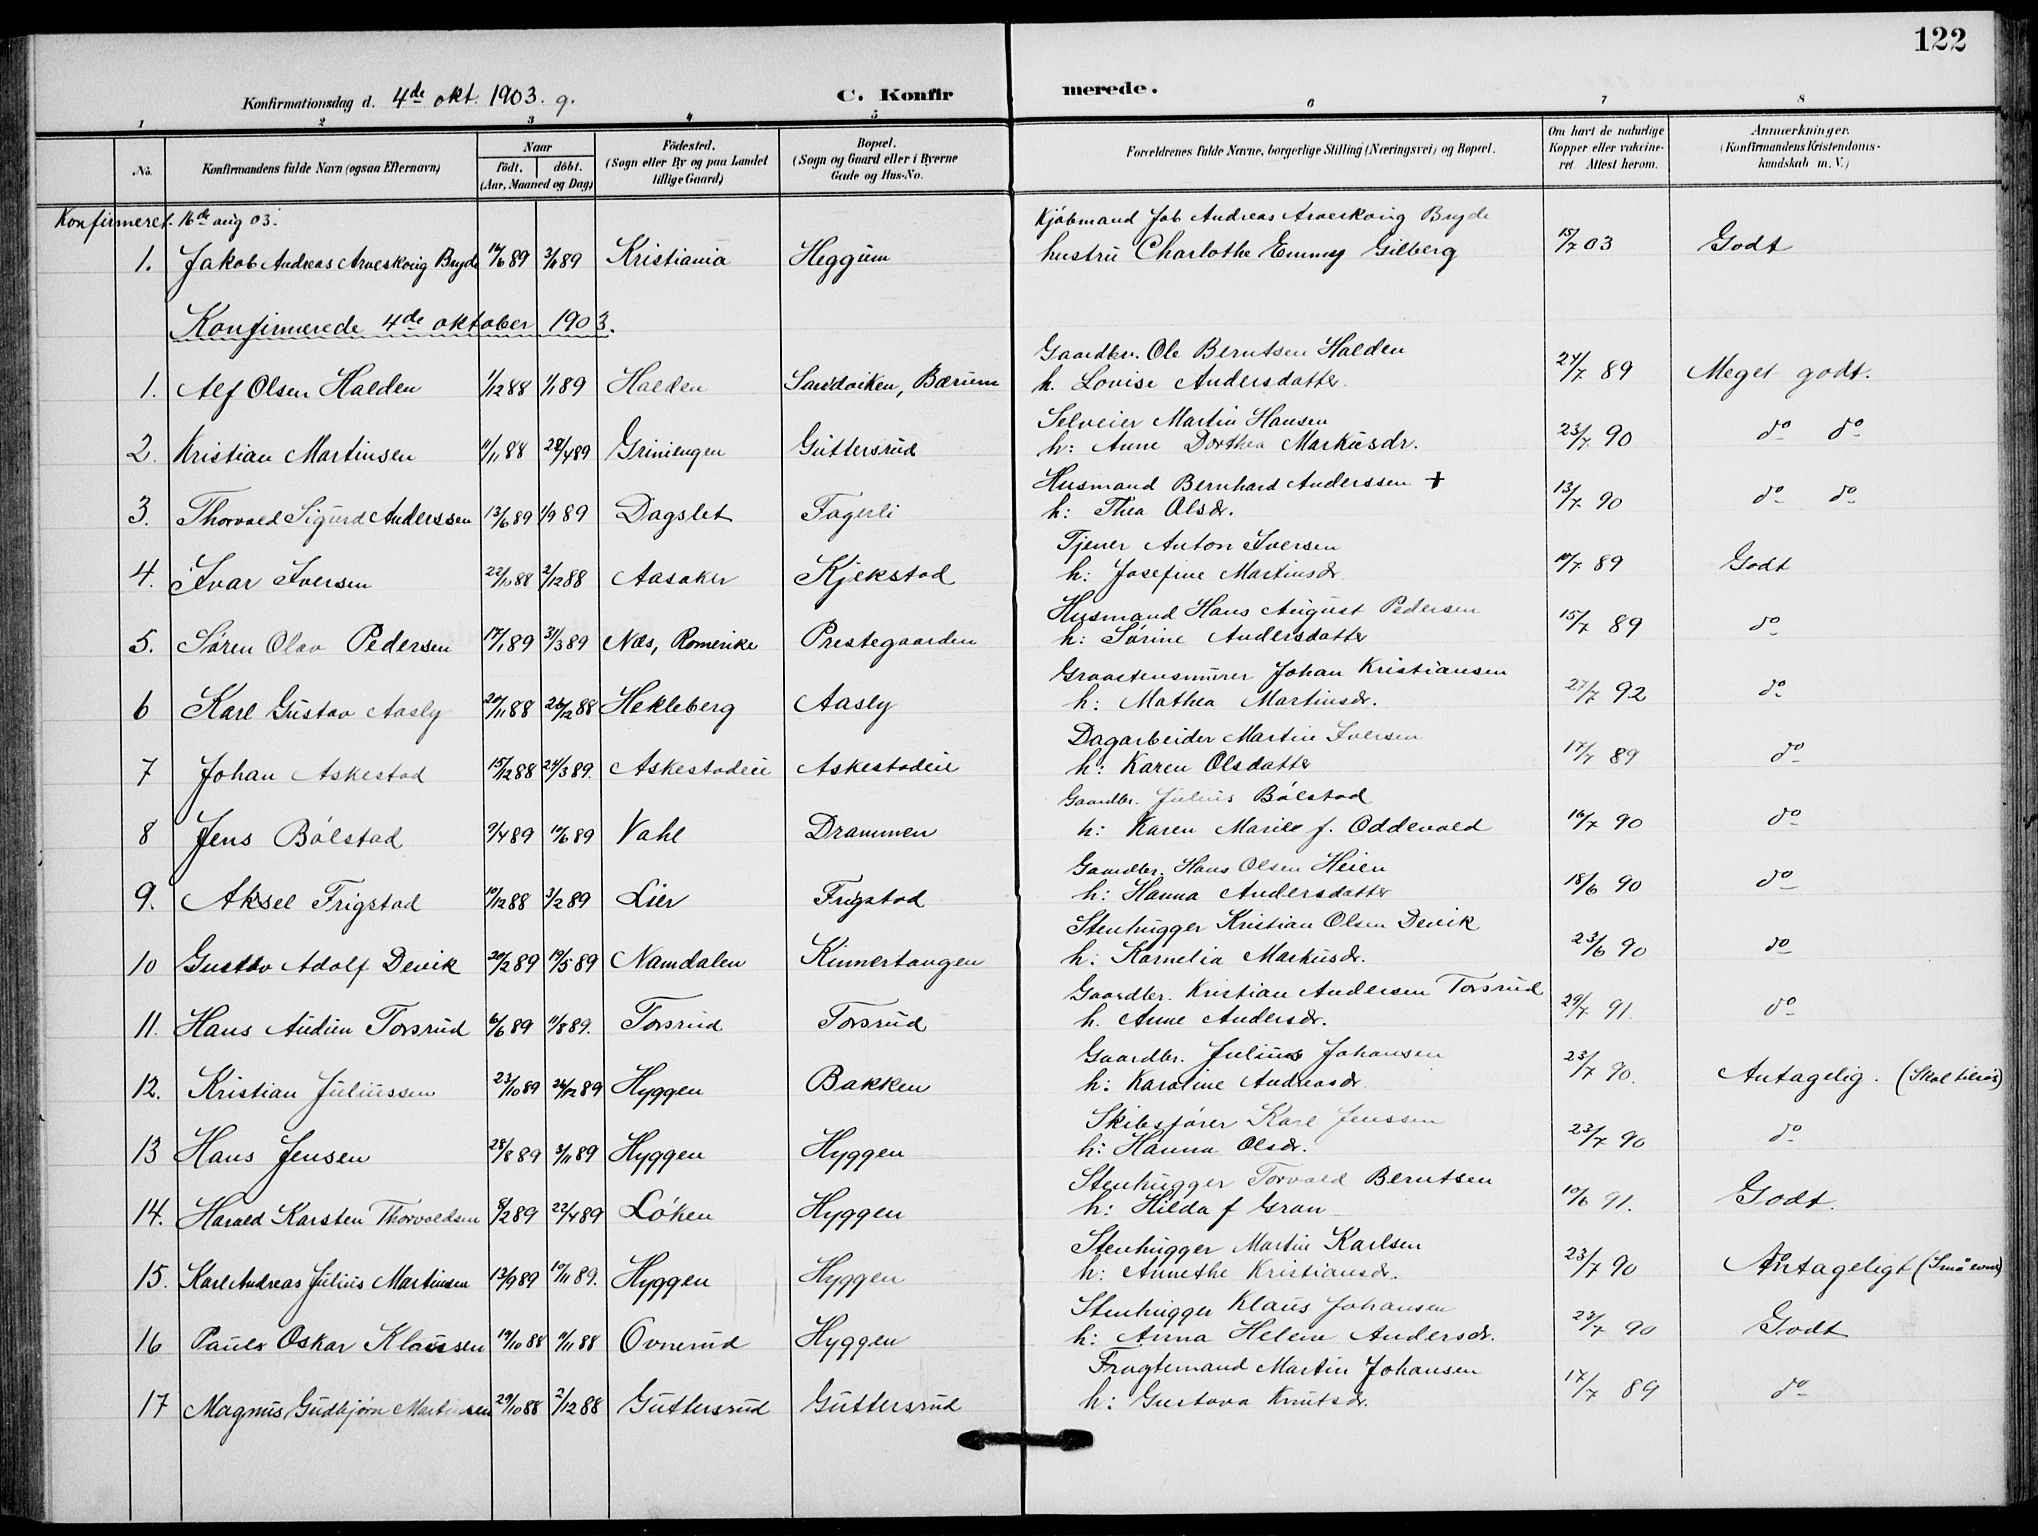 122
Konfirmationsdag d. 4de okt. 1903. g. C. Konfirmerede.
1 2 3 4 5 6 7 8
No. Konfirmandens fulde Navn (ogsaa Efternavn) Naar födt. döbt. (Aar, Maaned og Dag) Födested. (Sogn eller By og paa Landet tillige Gaard) Bopæl. (Sogn og Gaard eller i Byerne Gade og Hus-No. Forældrenes fulde Navne, borgerlige Stilling (Næringsvei) og Bopæl. Om havt de naturlige Kopper eller vakcineret. Attest herom. Anmærkninger. (Konfirmandens Kristendomskundskab m. V.)
Konfirmeret. 16de aug 03. Kjöbmand Jab Andreas Arveskoug Bryde
1. Jakob Andreas Arveskoug Bryde /6 89 3/11 89 Kristiania Heggum hustru Charlothe Emmy Gilberg 15/7 03 Godt
Konfirmerede 4de oktober 1903.
Gaardbr. Ole Berntsen Halden
1. Alf Olsen Halden 1/12 88 1/1 89 Halden Sandviken, Bærum h. Lovise Andersdatter. 24/7 89 Meget godt.
Selveier Martin Hansen
2. Kristian Martinsen 11/11 88 28/4 89 Griniengen Guttersrud h: Anne Dorthea Markusdr. 23/7 90 do do
Husmand Bernhard Anderssen +
3. Thorvald Sigurd Anderssen 13/6 89 1/9 89 Dagslet Fagerli h: Thea Olsdr. 13/7 90 do do
Tjener Anton Iversen
4. Ivar Iversen 22/10 88 2/12 88 Aasaker Kjekstad h: Josefine Martinsdr 10/7 89 Godt
Husmand Hans August Pedersen
5. Sören Olav Pedersen 17/1 89 31/3 89 Næs, Romerike Prestegaarden h: Sörine Andersdatter 15/7 89 do
Graastensmurer Johan Kristiansen
6 Karl Gustav Aasly 20/11 88 26/12 88 Hekleberg Aasly h: Mathea Martinsdr. 27/7 92 do
Dagarbeider Martin Iversen
7 Johan Askestad 15/12 88 24/3 89. Askestadeie Askestadeie h: Karen Olsdatter 17/7 89 do
Gaardbr. Julius Bölstad
8 Jens Bölstad 9/4 89 10/6 89 Vahl Drammen h: Karen Marie f. Oddevald 16/7 90 do
Gaardbr. Hans Olsen Heien
9. Aksel Frigstad 10/12 88 3/2 89 Lier Frigstad h: Hanna Andersdatter 18/6 90 do
Stenhugger Kristian Olsen Devik
10 Gustav Adolf Devik 20/2 89 19/5 89 Namdalen Kinnertangen h: Kornelia Markusdr. 23/6 90 do
Gaardbr. Kristian Andersen Torsrud
11. Hans Audun Torsrud 6/6 89 11/8 89. Torsrud Torsrud h. Anne Andersdr. 29/7 91. do
Gaardbr. Julius Johansen
12. Kristian Juliussen 23/10 89 26/12 89 Hyggen Bakken h: Karoline Andreasdr. 23/7 90. Antagelig.
Skibsförer Karl Jenssen
13 Hans Jensen 28/8 89 3/11 89 Hyggen Hyggen h: Hanna Olsdr. 23/7 90 do
Stenhugger Torvald Berntsen
14. Harald Karsten Thorvaldsen 8/2 89 22/4 89 Löken Hyggen h: Hilda f Gran 10/6 91. Godt.
Stenhugger Martin Karlsen
15. Karl Andreas Julius Martinsen 13/9 89 10/11 89. Hyggen Hyggen h: Annethe Kristiansdr. 23/7 90 Antageligt (Små evner)
Stenhugger Klaus Johansen
16 Paul Oskar Klausen 19/10 88 11/11 88 Ovnerud Hyggen h: Anna Helene Andersdr. 23/7 90 Godt
Frugtemand Martin Johansen
17 Magnus Gudbjörn Martinsen 29/10 88 2/12 88 Guttersrud Guttersrud h: Gustava Knutsdr. 17/7 89 do